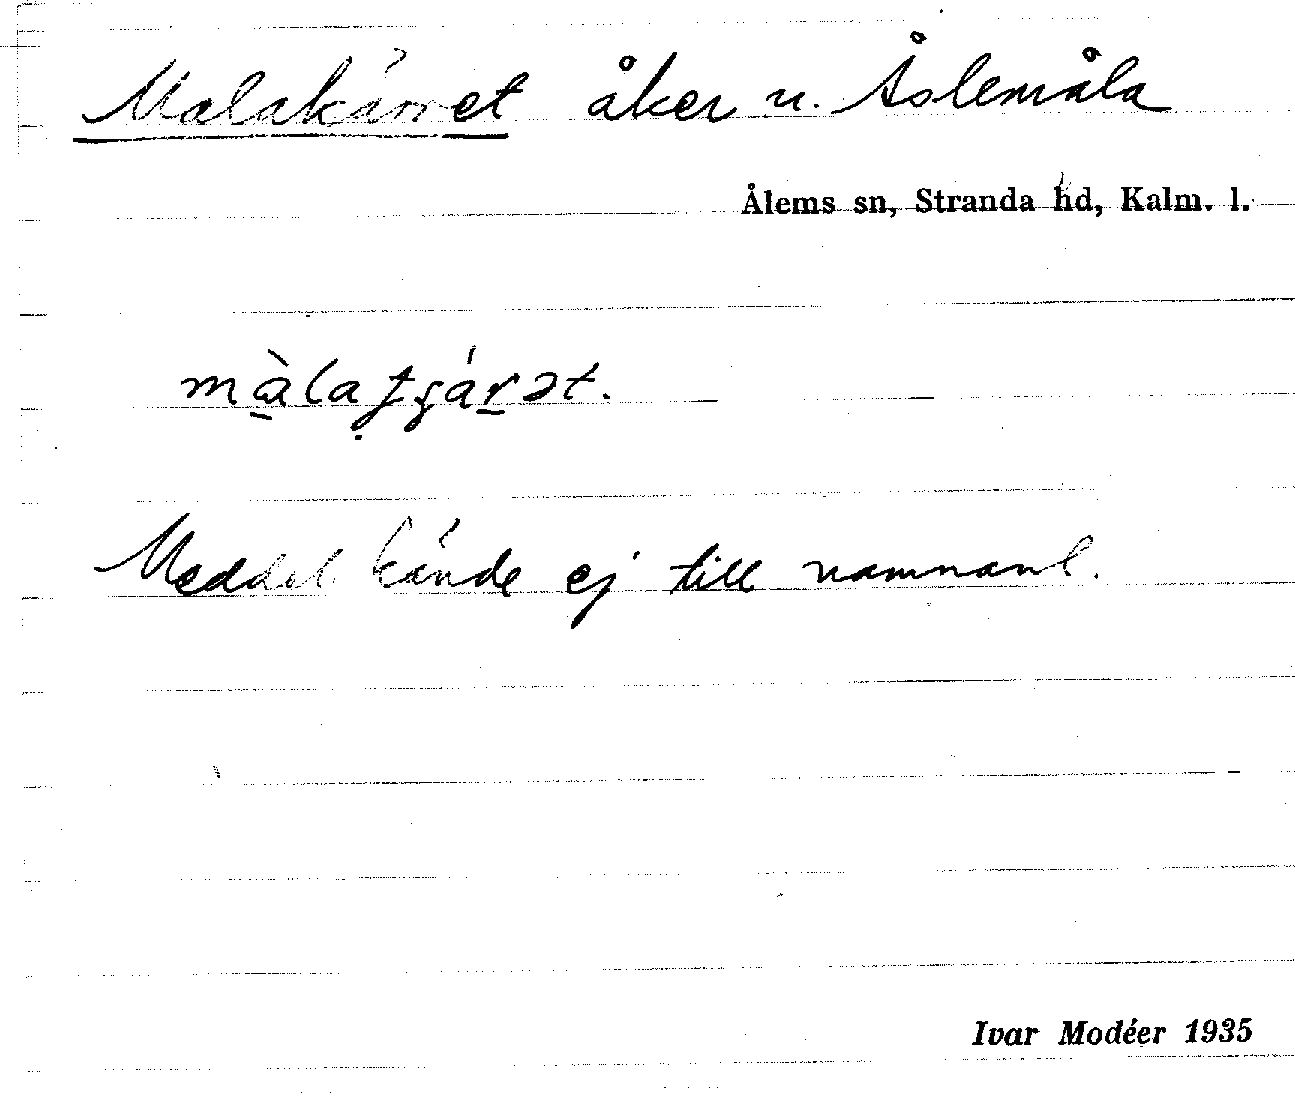 Malakärret åker u. Åslemåla
Ålems sn, Stranda hd, Kalm. l.
Meddel. kände ej till namnanl.
Ivar Modéer 1935